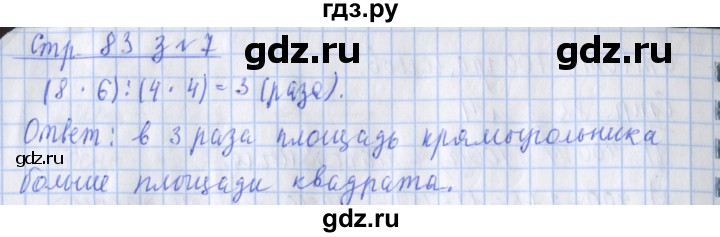 гдз.ру
Стр. 83 з № 7
gdz.ru gdz.ru
(8 · 6) : (4 · 4) = 3 (раза).
Ответ: в 3 раза площадь прямоугольника
gdz.ru
больше площади квадрата.
gdz.ru gdz.ru